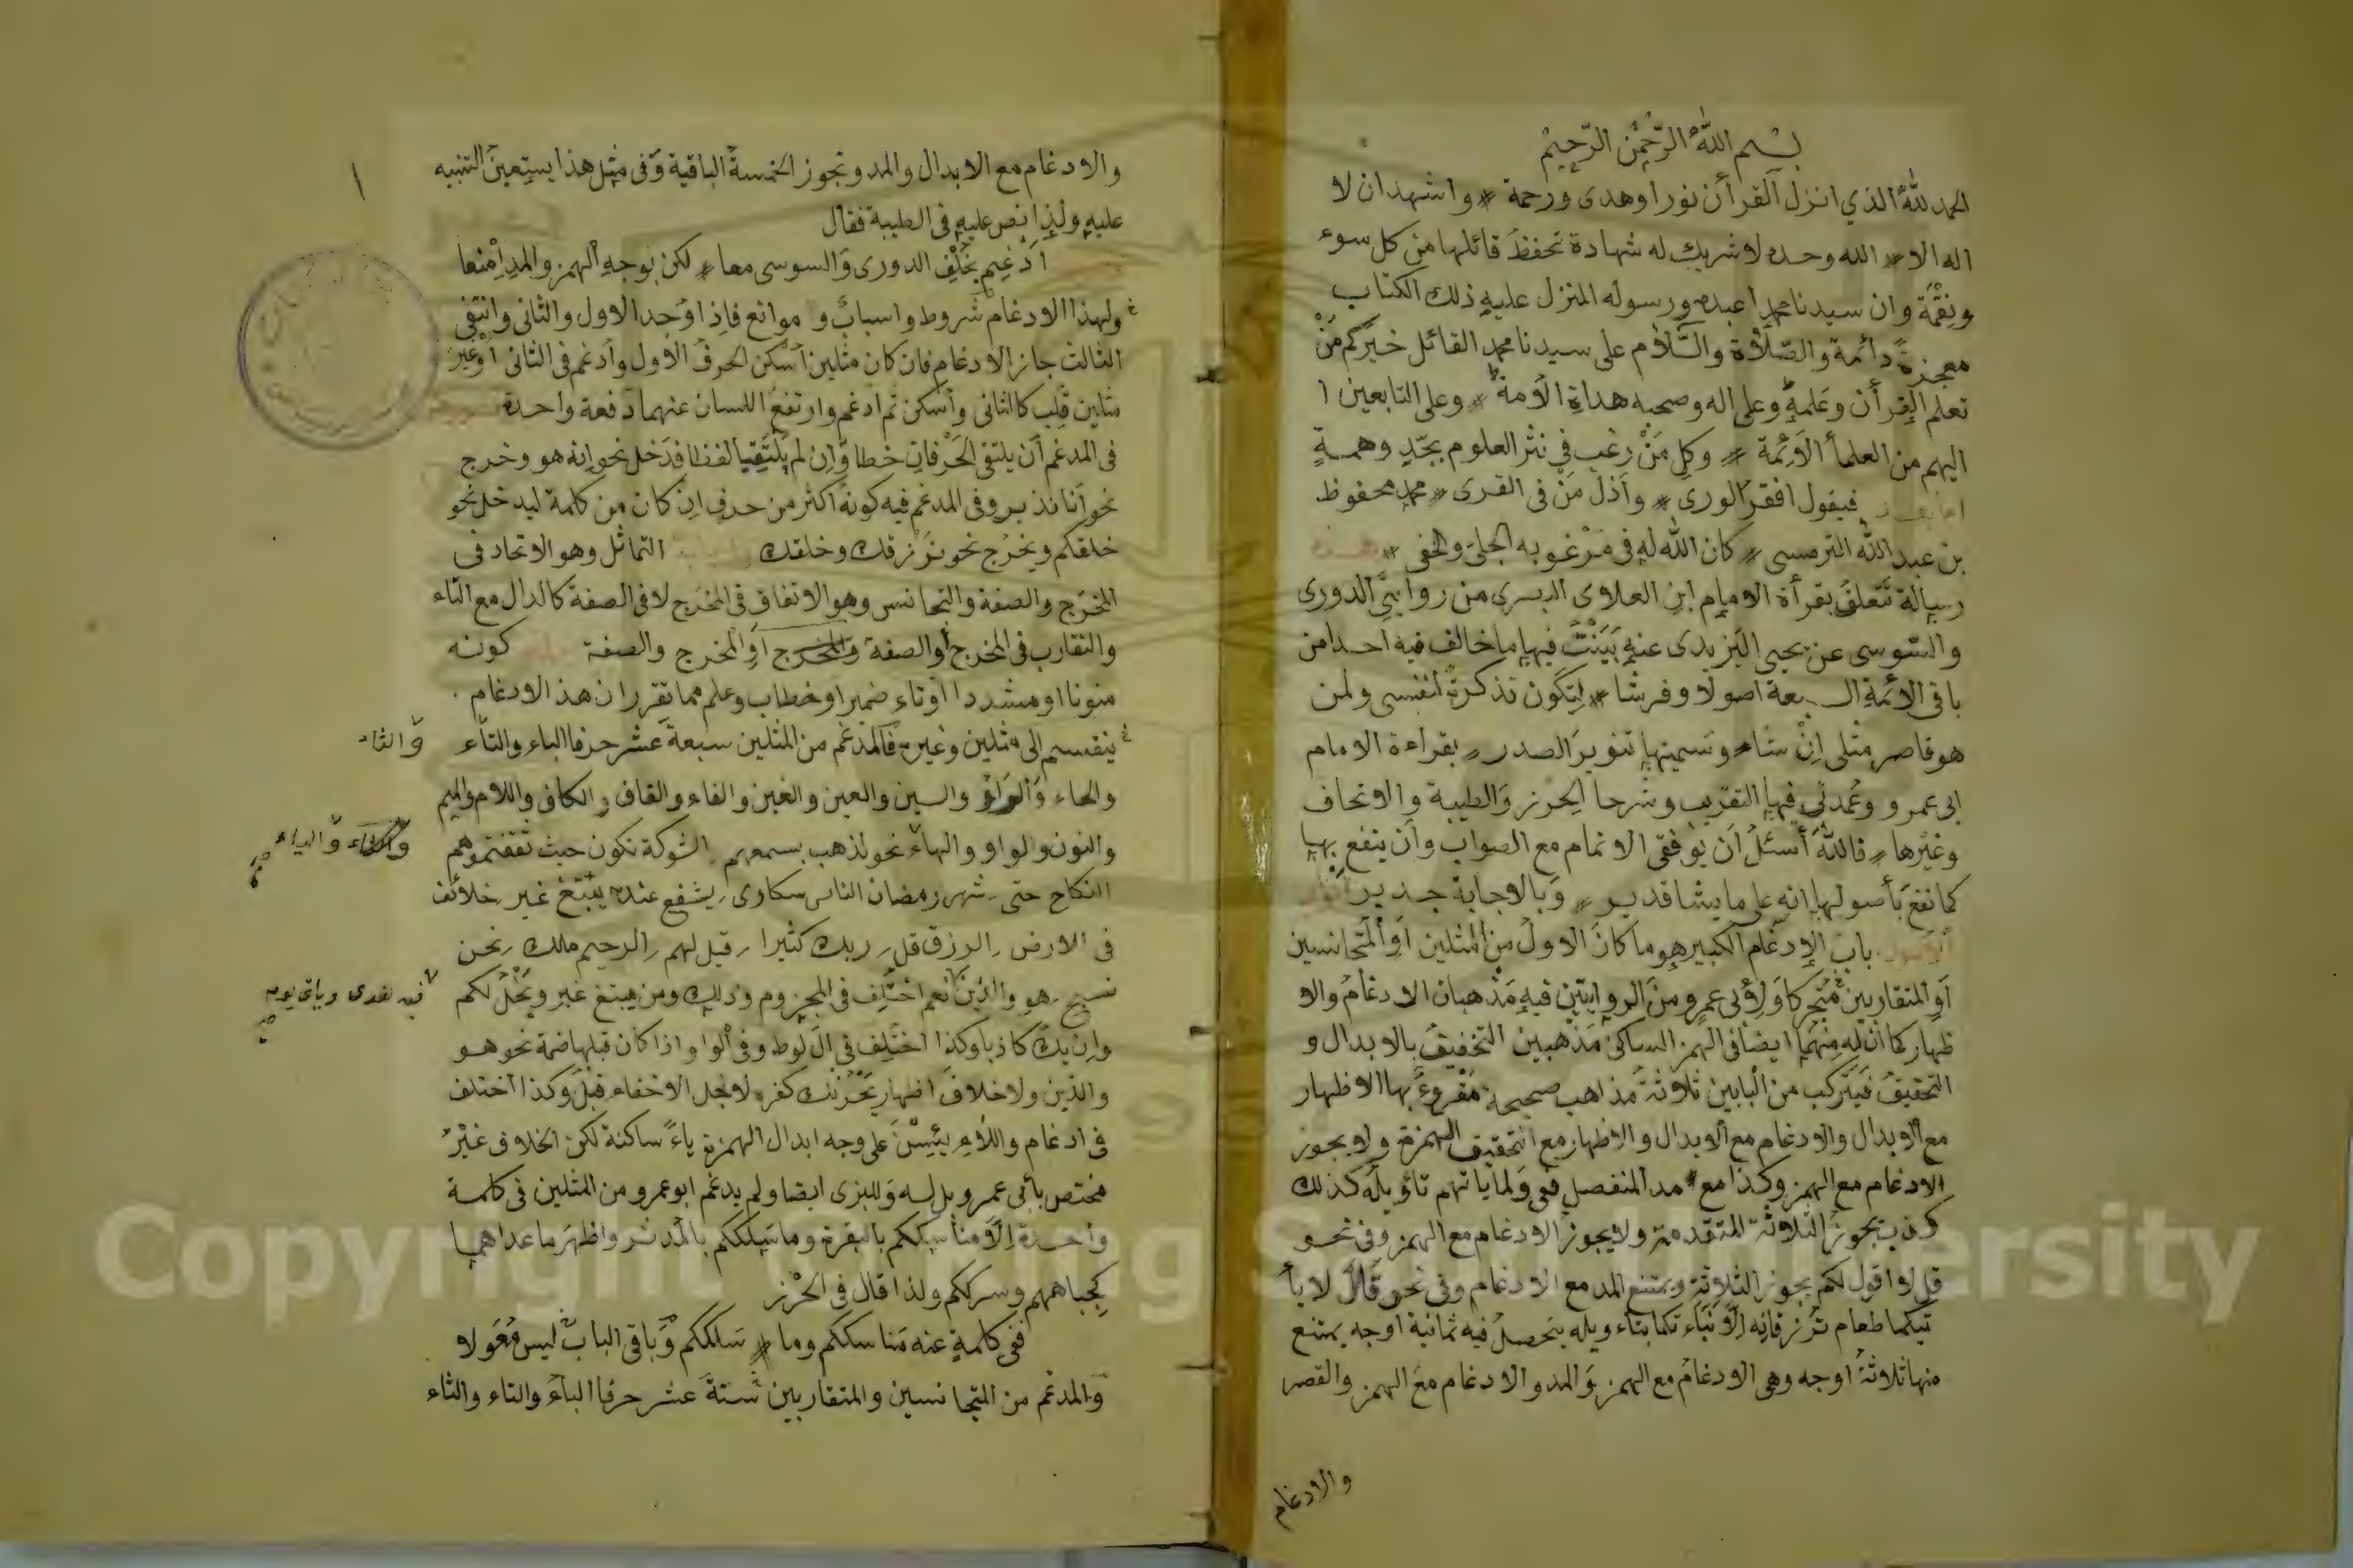 بسم الله الرحمن الرحيم
الحمد لله الذي انزل القرأن نورا وهدى ورحمة واشهد ان لا
اله الا الله وحده لا شريك له شهادة تحفظ قائلها من كل سوء
ونقمة وان سيدنا محمدا عبده ورسوله المنزل عليه ذلك الكتاب
معجزة دائمة والصلاة والسلام على سيدنا محمد القائل خيركم من
تعلم القرأن وعلمه وعلى اله وصحبه هداة الأمة وعلى التابعين ا
اليهم من العلمأ الأئمة وكل من رغب في نثر العلوم بجد وهمة
فيقول افقر الورى وأذل من فى القرى محمد محفوظ
بن عبد الله الترمسى كان الله له فى مرغوبه الجلى والخفى هذه
رسالة تتعلق بقرأة الامام ابن العلاوى البسرى من روايتي الدورى
والسوسى عن يحيى اليزيدى عنه بينت فيها ما خالف فيه احدا من
باقى الائمة السبعة اصولا وفرشا لتكون تذكرة لنفسى ولمن
هو قاصر مثلى ان شاء وسميتها تنوير الصدر بقراءة الامام
ابى عمرو وعمدتى فيها التقريب وشرحا الحرز والطيبة والاتحاف
وغيرها فالله أسئل أن يوفقى الاتمام مع الصواب وأن ينفع بها
كما نفع بأصولها انه على ما يشا قدير وبالاجابة جدير
الأصول باب الإدغام الكبير هو ما كان الاول من المثلين أو المتجانسين
أو المتقاربين متحركا ولأبى عمرو من الروايتين فيه مذهبان الادغام والا
ظهار كما أن له منهما ايضا فى الهمز الساكن مذهبين التخفيف بالابدال و
التحقيق فيتركب من البابين ثلاثة مذاهب صحيحة مقروء بها الاظهار
مع الابدال والادغام مع الابدال والاظهار مع التحقيق الهمزة ولا يجوز
الادغام مع الهمز وكذا مع مد المنفصل ففى ولما ياتهم تاؤيله كذلك
كذب يجوز الثلاثة المتقدمة ولا يجوز الادغام مع الهمز وفى نحو
قل لا اقول لكم يجوز الثلاثة ويمتنع المد مع الادغام وفى نحو قال لا يأ
تيكما طعام ترزقانه الا نبأتكما بتاء ويله يتحصل فيه ثمانية اوجه يمتنع
منها ثلاثة اوجه وهى الادغام مع الهمز والمد والادغام مع الهمز والقصر
والادغام
والادغام مع الابدال والمد وتجوز الخمسة الباقية وفى مثل هذا يستعين التنبيه
عليه ولذا نص عليه فى الطيبة فقال
أدغم بخلف الدورى والسوسى معا لكن بوجه الهمز والمد امنعا
ولهذا الادغام شروط واسباب و موانع فاذا وجد الاول والثانى وانتفى
الثالث جاز الادغام فان كان مثلين أسكن الحرف الاول وأدغم فى الثانى أو غير
مثلين قلب كالثانى وأسكن ثم ادغم وارتفع اللسان عنهما دفعة واحدة
فى المدغم أن يلتقى الحرفان خطا وان لم يلتقيا لفظا فدخل نحو انه هو وخرج
نحو أنا نذير وفى المدغم فيه كونه أكثر من حرف ان كان من كلمة ليدخل نحو
خلقكم ويخرج نحو نرزقك وخلقك التماثل وهو الاتحاد فى
المخرج والصفة والتجانس وهو الاتفاق فى المخرج لا فى الصفة كالدال مع التاء
والتقارب فى المخرج أو الصفة والمخرج أو المخرج والصفة كونه
منونا او مشددا اوتاء ضمير او خطاب وعلم مما تقرر ان هذ الادغام
ينقسم الى مثلين وغيره فالمدغم من المثلين سبعة عشر حرفا الباء والتاء
والثاء
والحاء والراء والسين والعين والغين والفاء والقاف والكاف واللام والميم
والنون والواو والهاء نحو لذهب بسمعهم الشوكة تكون حيث ثقفتموهم
والياء صح
النكاح حتى شهر رمضان الناس سكارى يشفع عنده يبتغ غير خلائف
فى الارض الرزق قل ربك كثيرا قيل لهم الرحيم ملك نحن
نسبح هو والذين نعم اختلف فى المجزوم وذلك ومن يبتغ غير ويخل لكم
فيه هدى وياتى يوم صح
وان يك كاذبا وكذا اختلف فى ال لوط وفى الواو اذا كان قبلها ضمة نحو هو
والذين ولا خلاف اظهار يحزنك كفره لاجل الاخفاء قبل وكذا اختلف
فى ادغام واللاء يئسن على وجه ابدال الهمزة ياء ساكنة لكن الخلاف غير
مختص بأبى عمرو بل له وللبزى ايضا ولم يدغم ابو عمرو من المثلين فى كلمة
واحدة الا مناسككم بالبقرة وما سلككم بالمدثر واظهر ما عداهما
كجباههم وشرككم ولذا قال فى الحرز
ففى كلمة عنه مناسككم وما سلككم وباقى الباب ليس معولا
والمدغم من المتجانسين والمتقاربين ستة عشر حرفا الباء والتاء والثاء
١
Copyright © King Saud University